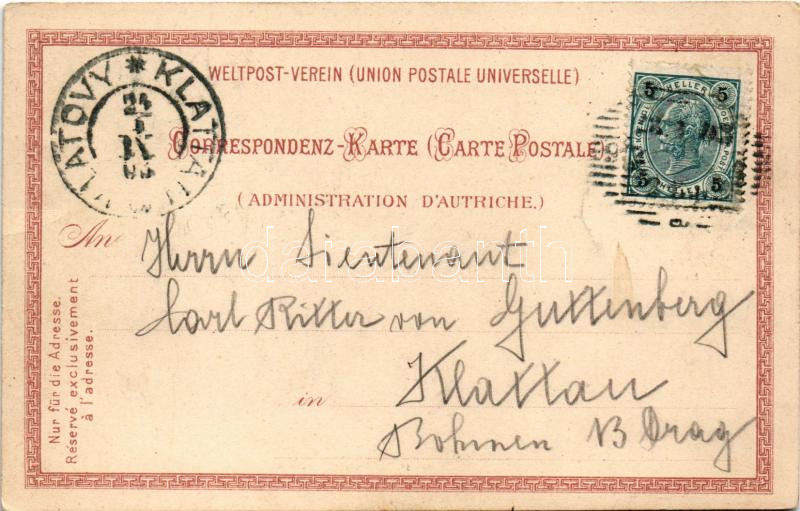 WELTPOST-VEREIN (UNION POSTALE UNIVERSELLE)
KLATOVY * KLATTAU
24
5
HELLER
5
CORRESPONDENZ-KARTE (CARTE POSTALE)
5
HELLER
5
(ADMINISTRATION D'AUTRICHE.)
An Herrn Lieutenant
darabanth
Carl Ritter von Guttenberg
in Klattau
Böhmen
Nur für die Adresse.
Réservé exclusivement
à l'adresse.